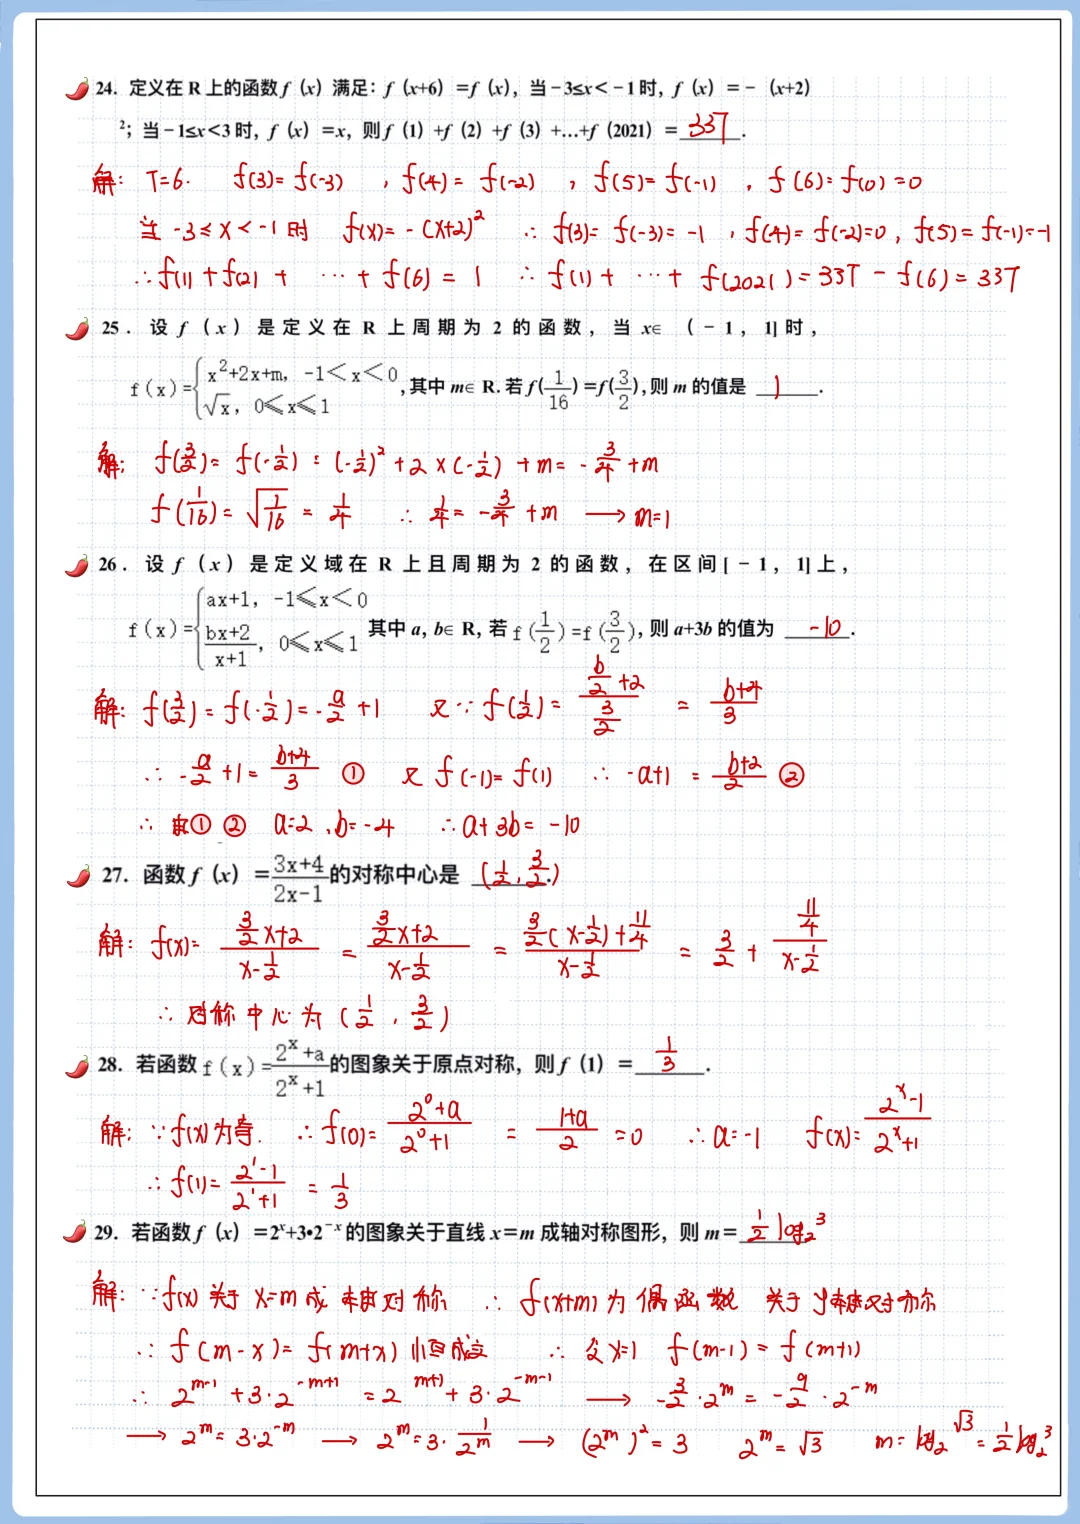 24. 定义在 R 上的函数 f（x）满足：f（x+6）=f（x），当－3≤x＜－1时，f（x）=－（x+2）
²；当－1≤x<3时，f（x）=x，则f（1）+f（2）+f（3）+…+f（2021）= 337 .
解: T=6. f(3)=f(-3) , f(4)=f(-2) , f(5)=f(-1) , f(6)=f(0)=0
当 -3≤x<-1时 f(x)=-(x+2)² ∴ f(3)=f(-3)=-1 , f(4)=f(-2)=0, f(5)=f(-1)=-1
∴f(1)+f(2)+ ⋯ +f(6)=1 ∴ f(1)+ ⋯ + f(2021)=337-f(6)=337
25．设 f（x）是定义在 R 上周期为 2 的函数，当 x∈（－1，1]时，
f(x)={x²+2x+m, -1<x<0
√x, 0≤x≤1 ,其中 m∈R.若 f(1/16)=f(3/2),则 m 的值是 1 .
解: f(3/2)=f(-1/2)=(-1/2)²+2×(-1/2)+m=-3/4+m
f(1/16)=√(1/16)=1/4 ∴ 1/4=-3/4+m ⟶ m=1
26．设 f（x）是定义域在 R 上且周期为 2 的函数，在区间[－1，1]上，
f(x)={ax+1, -1≤x<0
(bx+2)/(x+1), 0≤x≤1 其中 a, b∈R, 若 f(1/2)=f(3/2), 则 a+3b 的值为 -10 .
解: f(3/2)=f(-1/2)=-a/2+1 又∵ f(1/2)=(b/2+2)/(3/2) = (b+4)/3
∴ -a/2+1=(b+4)/3 ① 又 f(-1)=f(1) ∴ -a+1=(b+2)/2 ②
∴ 由① ② a=2 ,b=-4 ∴a+3b=-10
27．函数 f（x）=(3x+4)/(2x-1) 的对称中心是 (1/2, 3/2) .
解: f(x)=(3/2x+2)/(x-1/2) = (3/2x+2)/(x-1/2) = (3/2(x-1/2)+11/4)/(x-1/2) = 3/2 + (11/4)/(x-1/2)
∴ 对称中心为 (1/2, 3/2)
28．若函数 f(x)=(2ˣ+a)/(2ˣ+1) 的图象关于原点对称，则 f（1）= 1/3 .
解: ∵f(x)为奇. ∴ f(0)=(2⁰+a)/(2⁰+1) = (1+a)/2 =0 ∴ a=-1 f(x)=(2ˣ-1)/(2ˣ+1)
∴ f(1)=(2¹-1)/(2¹+1) = 1/3
29．若函数 f（x）=2ˣ+3•2⁻ˣ 的图象关于直线 x=m 成轴对称图形，则 m= 1/2 log₂3
解: ∵f(x)关于 x=m 成轴对称 ∴ f(x+m)为偶函数 关于y轴对称
∴ f(m-x)=f(m+x)恒成立 ∴ 令x=1 f(m-1)=f(m+1)
∴ 2^(m-1)+3·2^(-m+1)=2^(m+1)+3·2^(-m-1) ⟶ -3/2·2^m=-9/2·2^(-m)
⟶ 2^m=3·2^(-m) ⟶ 2^m=3·1/2^m ⟶ (2^m)²=3 2^m=√3 m=log₂√3=1/2 log₂3